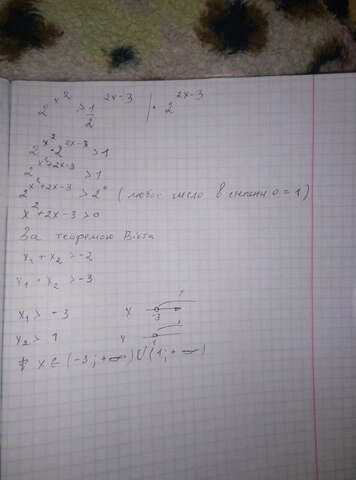 2^{x^2} > \frac{1}{2}^{2x-3} | · 2^{2x-3}
2^{x^2} · 2^{2x-3} > 1
2^{x^2+2x-3} > 1
2^{x^2+2x-3} > 2^0 (любое число в степені 0 = 1)
x^2 + 2x - 3 > 0
За теоремою Вієта
x₁ + x₂ > -2
x₁ · x₂ > -3
x₁ > -3 x
x₂ > 1 x
x ∈ (-3; +∞) U (1; +∞)